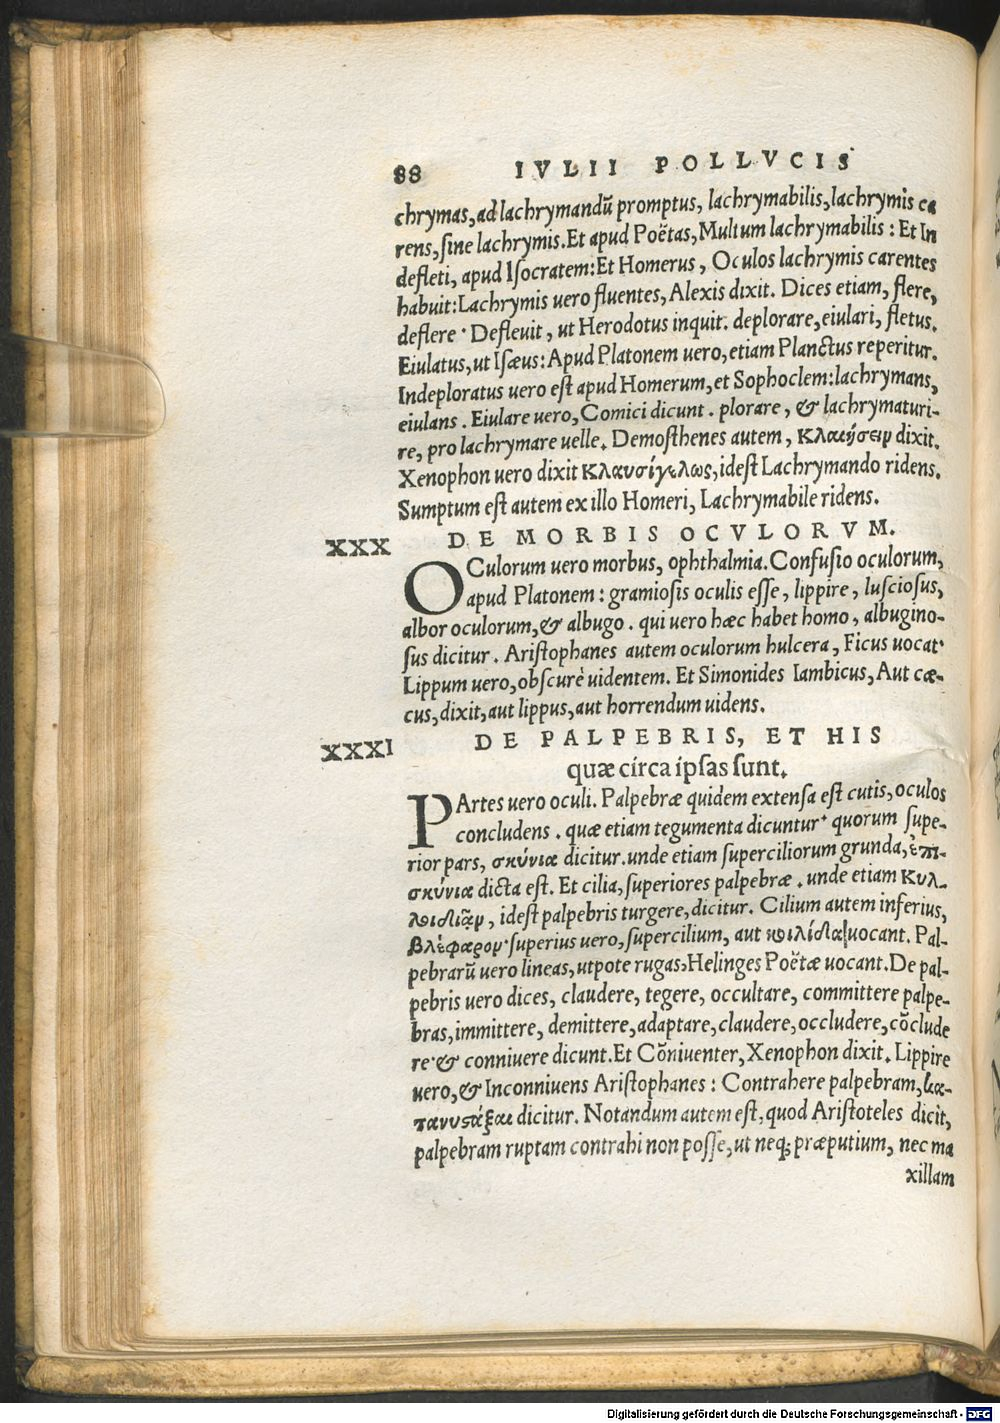 88 IVLII POLLVCIS
chrymas, ad lachrymandũ promptus, lachrymabilis, lachrymis ca
rens, sine lachrymis. Et apud Poëtas, Multum lachrymabilis : Et In
defleti, apud Isocratem: Et Homerus, Oculos lachrymis carentes
habuit: Lachrymis uero fluentes, Alexis dixit. Dices etiam, flere,
deflere · Defleuit, ut Herodotus inquit. deplorare, eiulari, fletus.
Eiulatus, ut Isæus: Apud Platonem uero, etiam Planctus reperitur.
Indeploratus uero est apud Homerum, et Sophoclem: lachrymans,
eiulans. Eiulare uero, Comici dicunt. plorare, & lachrymaturi-
re, pro lachrymare uelle. Demosthenes autem, κλαιήσειν dixit.
Xenophon uero dixit κλαυσίγελως, idest Lachrymando ridens.
Sumptum est autem ex illo Homeri, Lachrymabile ridens.
XXX DE MORBIS OCVLORVM.
OCulorum uero morbus, ophthalmia. Confusio oculorum,
apud Platonem : gramiosis oculis esse, lippire, lusciosus,
albor oculorum, & albugo. qui uero hæc habet homo, albugino-
sus dicitur. Aristophanes autem oculorum hulcera, Ficus uocat·
Lippum uero, obscurè uidentem. Et Simonides Iambicus, Aut cæ-
cus, dixit, aut lippus, aut horrendum uidens.
XXXI DE PALPEBRIS, ET HIS
quæ circa ipsas sunt.
PArtes uero oculi. Palpebræ quidem extensa est cutis, oculos
concludens. quæ etiam tegumenta dicuntur· quorum supe-
rior pars, σκύνια dicitur. unde etiam superciliorum grunda, ἐπι-
σκύνια dicta est. Et cilia, superiores palpebræ. unde etiam κυλ-
λοιδιᾶν, idest palpebris turgere, dicitur. Cilium autem inferius,
βλέφαρον· superius uero, supercilium, aut κοιλίδια uocant. Pal-
pebrarũ uero lineas, utpote rugas, Helinges Poëtæ uocant. De pal-
pebris uero dices, claudere, tegere, occultare, committere palpe-
bras, immittere, demittere, adaptare, claudere, occludere, cõclude
re· & conniuere dicunt. Et Cõniuenter, Xenophon dixit. Lippire
uero, & Inconniuens Aristophanes : Contrahere palpebram, κα-
τανυστάξαι dicitur. Notandum autem est, quod Aristoteles dicit,
palpebram ruptam contrahi non posse, ut neq; præputium, nec ma
xillam
Digitalisierung gefördert durch die Deutsche Forschungsgemeinschaft - DFG